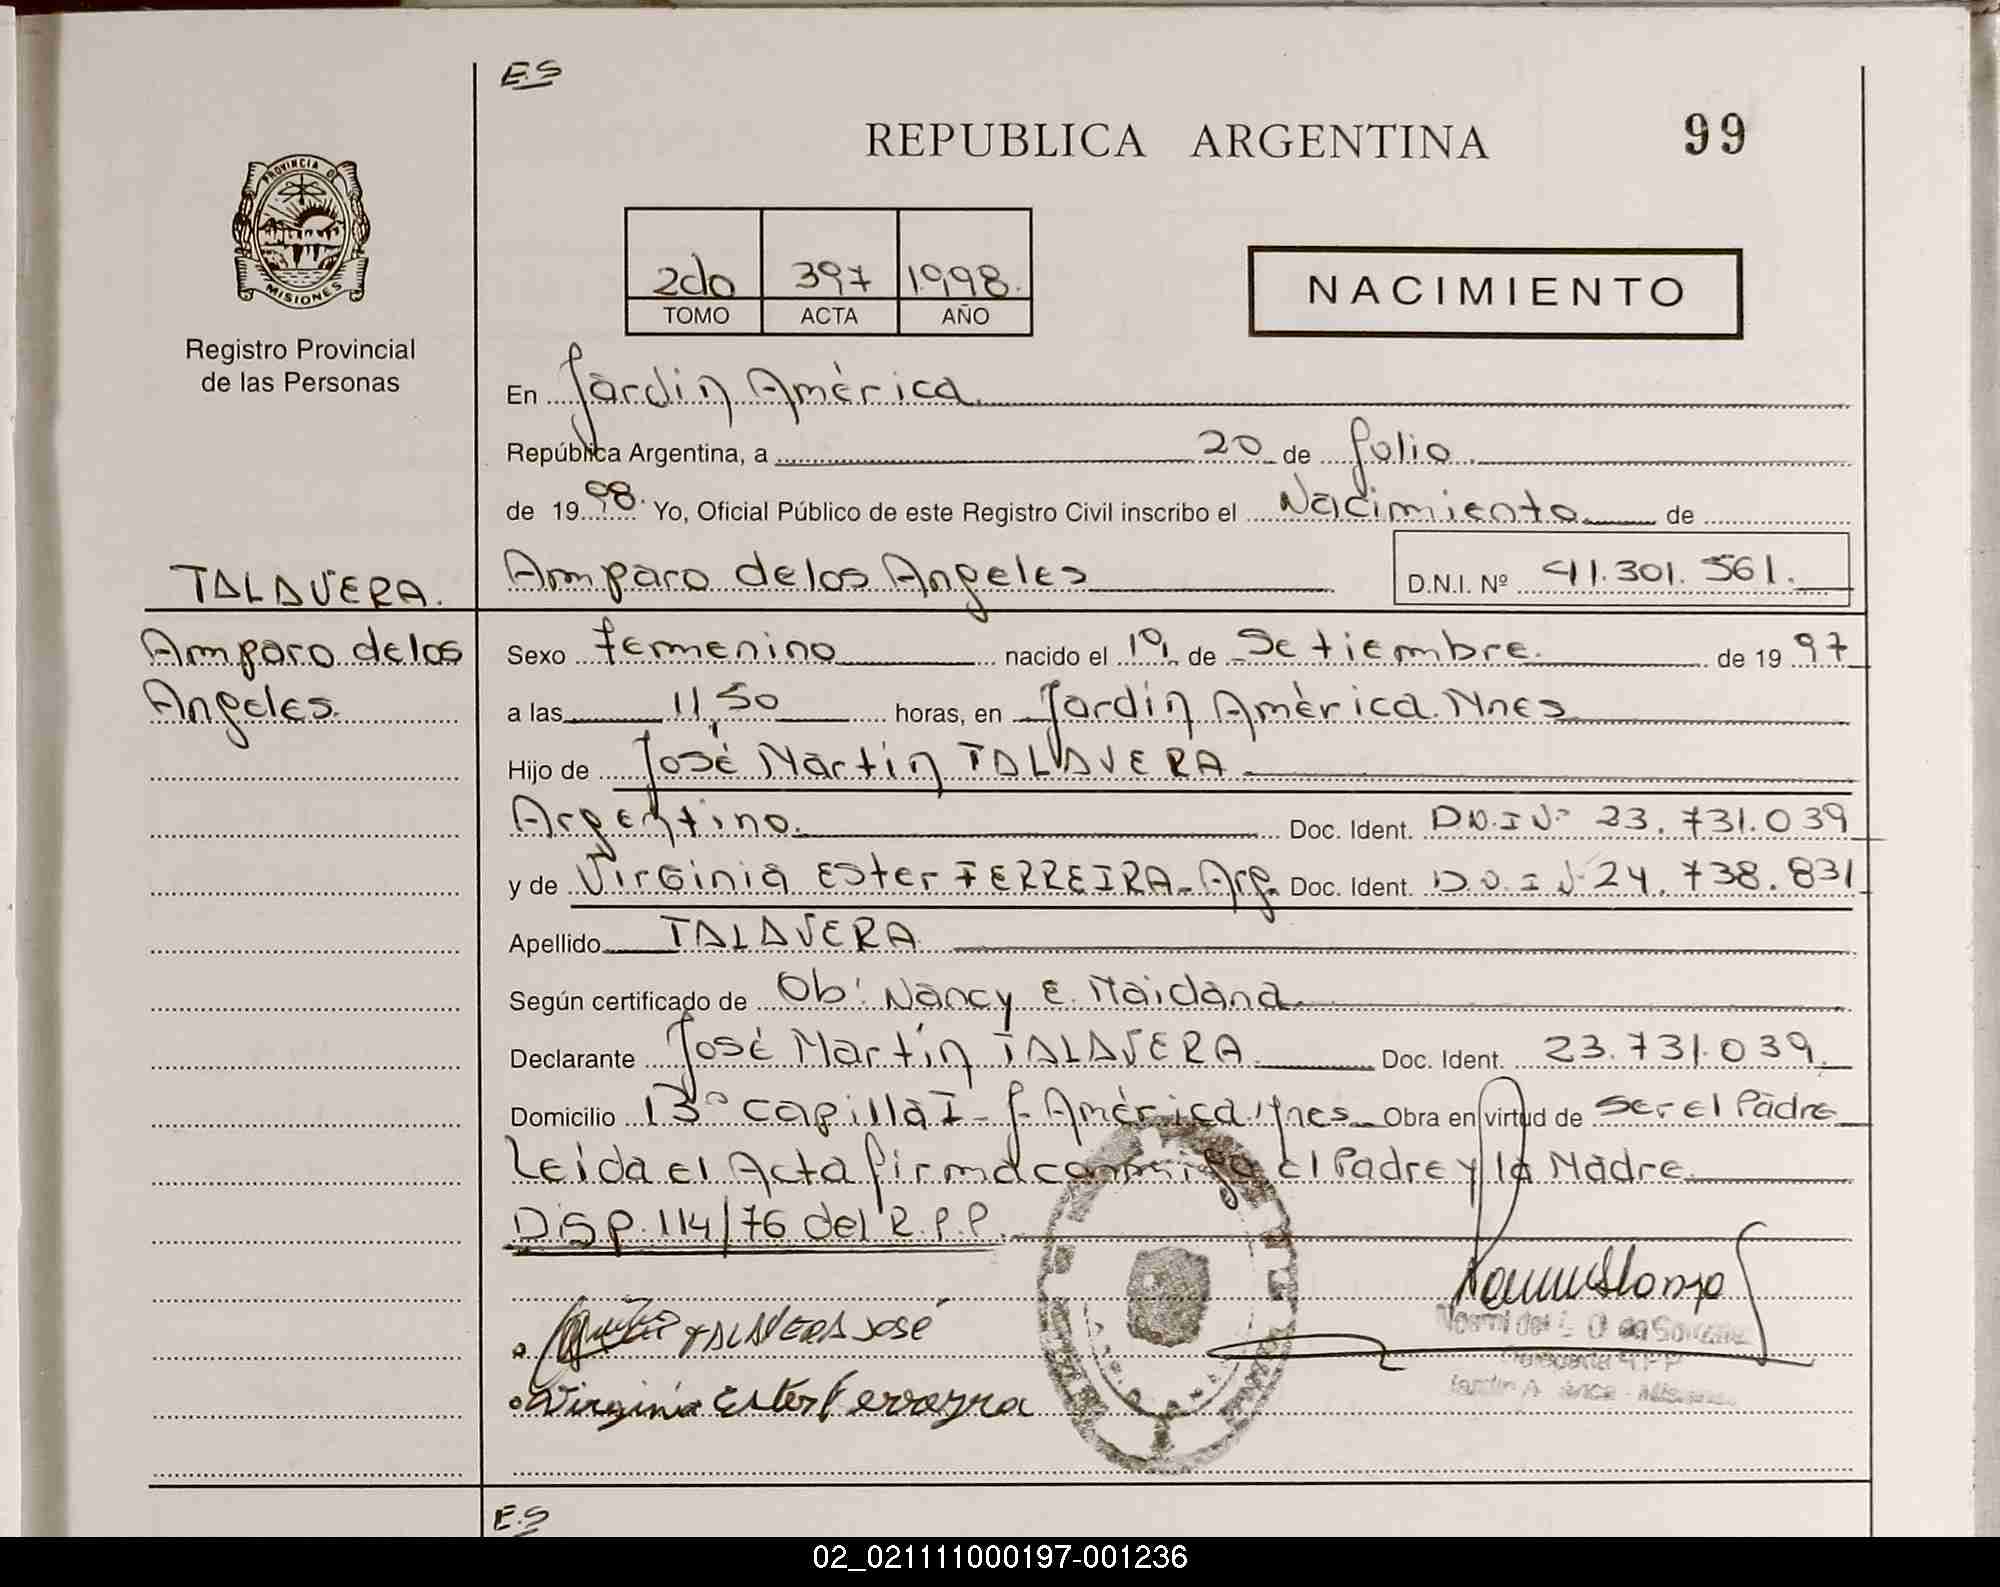 E.S
REPUBLICA ARGENTINA
99
PROVINCIA DE
MISIONES
Registro Provincial
de las Personas
2do 397 1998.
TOMO ACTA AÑO
NACIMIENTO
En Jardin América.
República Argentina, a 20 de Julio
de 1998. Yo, Oficial Público de este Registro Civil inscribo el Nacimiento de
TALAVERA.
Amparo de los Angeles D.N.I. Nº 41.301.561.
Amparo de los
Angeles.
Sexo femenino nacido el 19 de Setiembre. de 1997
a las 11,50 horas, en Jardin América. Mnes
Hijo de José Martin TALAVERA
Argentino. Doc. Ident. D.N.I Nº 23.731.039
y de Virginia Ester FERREIRA - Arg. Doc. Ident. D.N.I Nº 24.738.831
Apellido TALAVERA
Según certificado de Ob: Nancy E. Maidana.
Declarante José Martín TALAVERA Doc. Ident. 23.731.039.
Domicilio Bº Capilla I - J. América Mnes Obra en virtud de ser el Padre
Leida el Acta firma conmigo el Padre y la Madre.
Disp. 114/76 del R.P.P.
TALAVERA JOSÉ
Virginia Ester Ferreyra
E.S
02_021111000197-001236